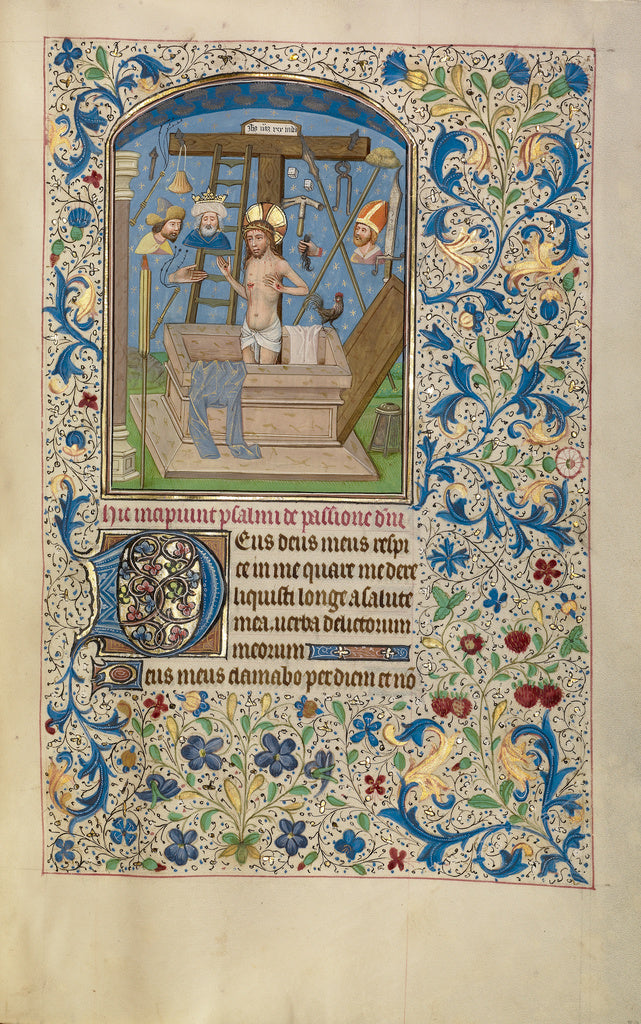 ihs naz rex iude
Hic incipiunt psalmi de passione dni
Deus deus meus respi
ce in me quare me dere
liquisti longe a salute
mea uerba delictorum
meorum
Deus meus clamabo per diem et nō